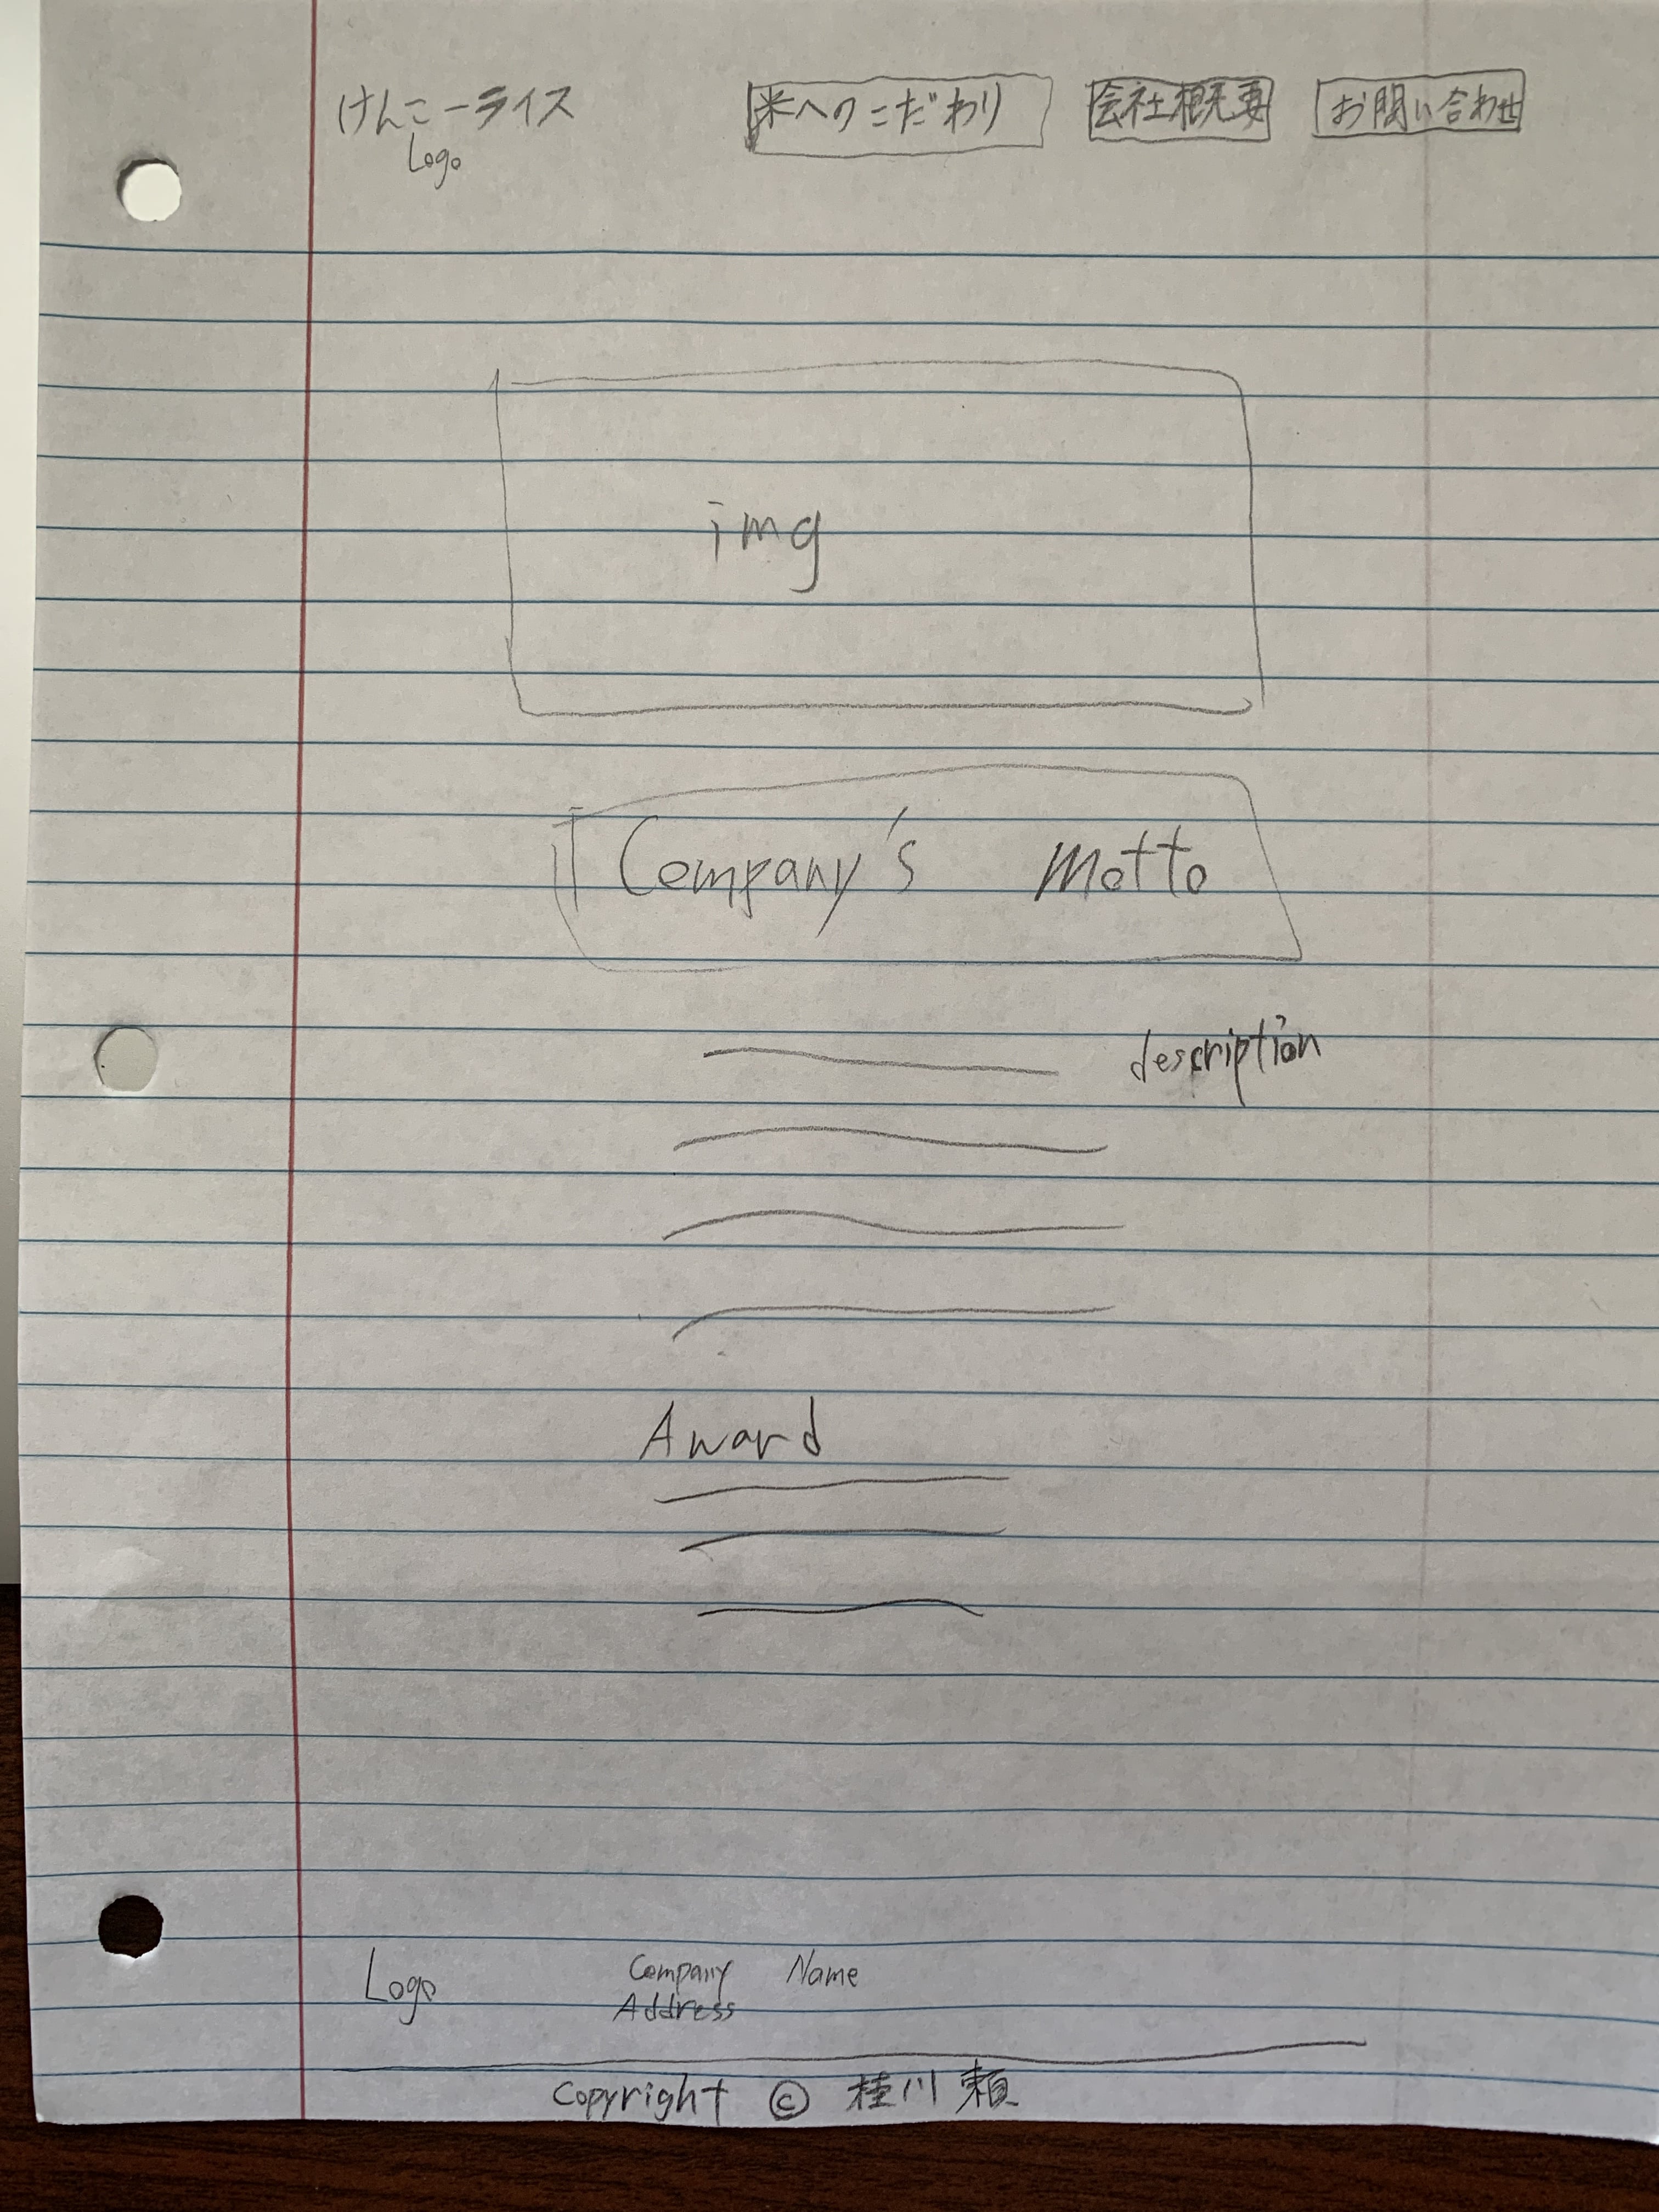 けんこーライス 米へのこだわり 会社概要 お問い合わせ
Logo
img
Company's Motto
description
Award
Logo Company Name
Address
Copyright © 桂川 頼